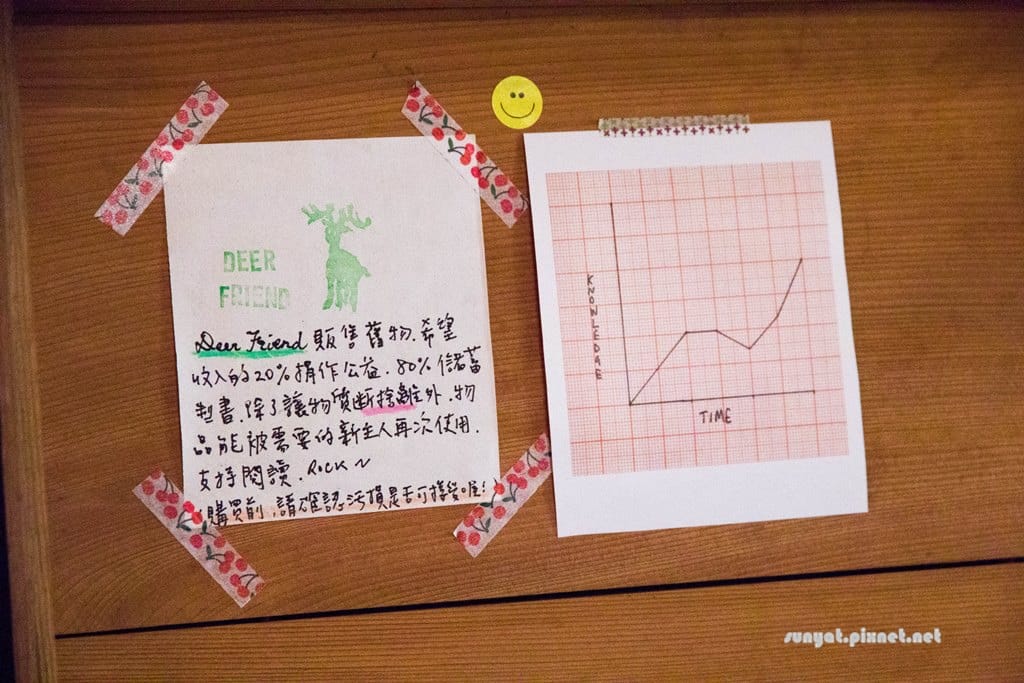 DEER
FRIEND
Deer Friend 販售舊物.希望
收入的20%捐作公益.80%儲蓄
製書.除了讓物質断捨離外.物
品能被需要的新主人再次使用.
支持閱讀.ROCK~
購買前,請確認污損是否可接受喔!
KNOWLEDGE
TIME
sunyat.pixnet.net